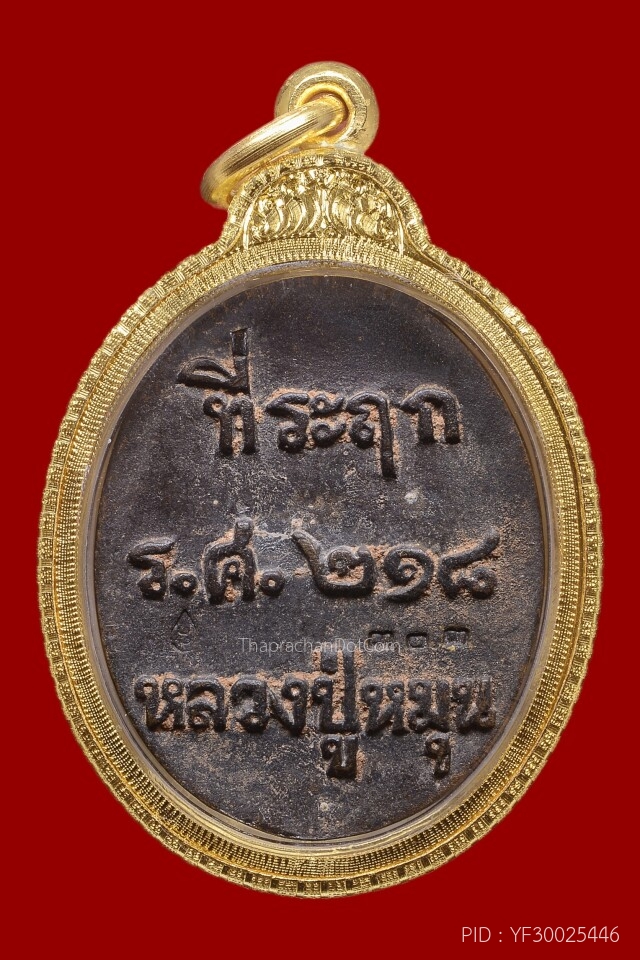 ที่ระฤก
ร.ศ. ๒๑๘
ThaprachanDotCom
หลวงปู่หมุน
PID : YF30025446